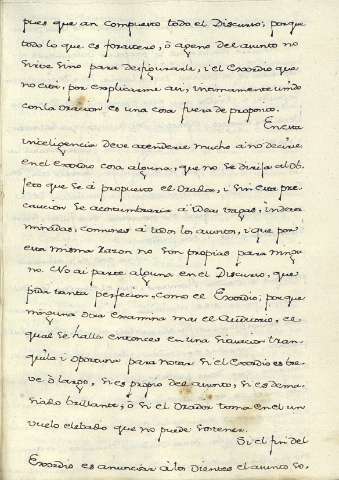 pues que an compuesto todo el Discurso; porque
todo lo que es forastero, ò ageno del asunto no
sirve sino para desfigurarle, i el Exordio que
no està, por explicarme asi, intimamente unido
con la Oracion es una cosa fuera de proposito.
En esta
inteligencia deve atenderse mucho à no decirse
en el exordio cosa alguna, que no se dirija al Ob-
jeto que se à propuesto el Orador, i sin esta pre-
caucion se acostumbraria à ideas vagas, indeter
minadas, comunes à todos los asuntos, i que por
esta misma razon no son proprias para ningu
no. No ai parte alguna en el Discurso, que
pida tanta perfecion, como el Exordio; porque
ninguna otra examina mas el Auditorio, el
qual se halla entonces en una situacion tran
quila i oportuna para notar si el Exordio es bre
ve ò largo, si es propio del asunto, si es dema
siado brillante, ò si el Orador toma en el un
vuelo elebado que no puede sostener.
Si el fin del
Exordio es anunciar à los Oientes el asunto so,